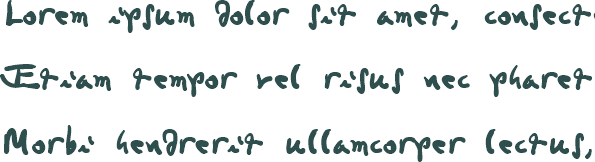 Lorem ipsum dolor sit amet, consect
Etiam tempor vel risus nec pharet
Morbi hendrerit ullamcorper lectus,